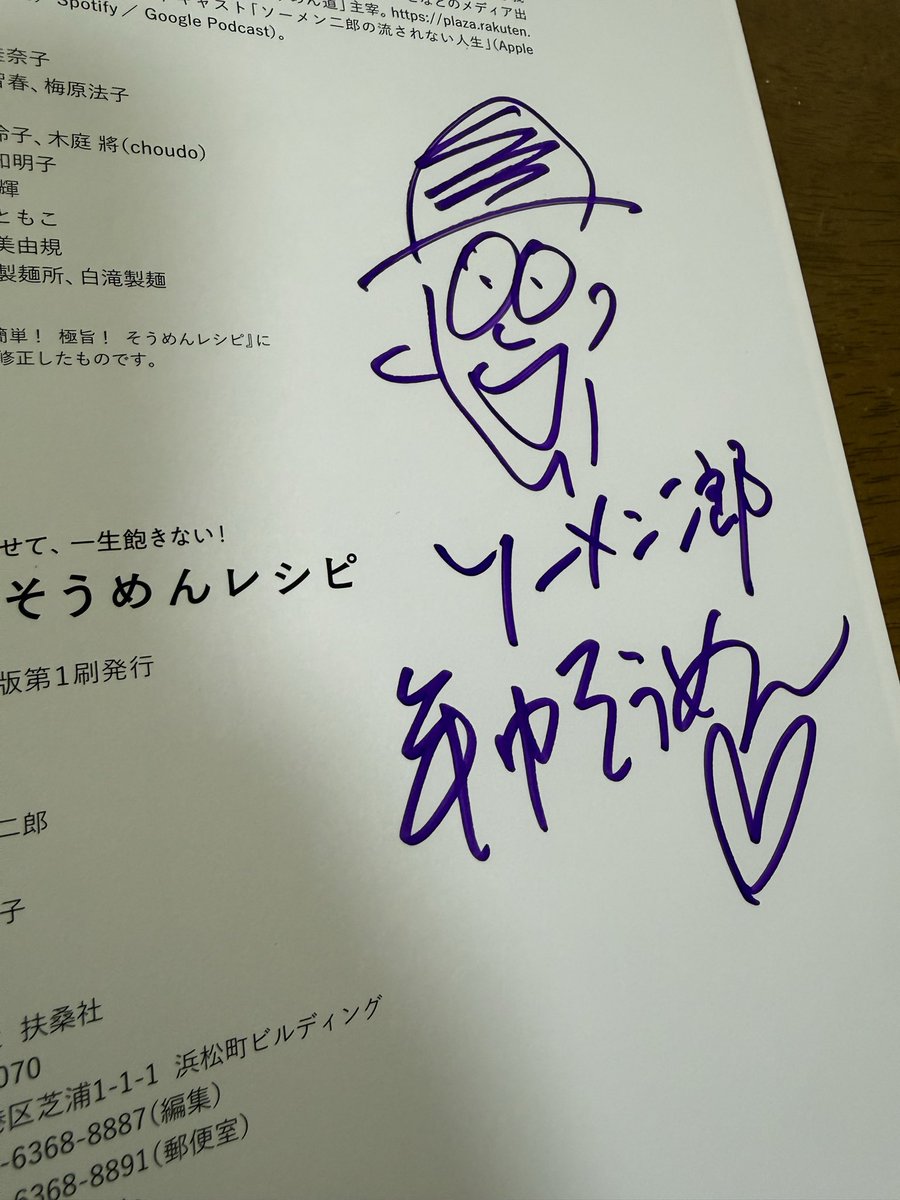 などのメディア出
めん道」主宰。https://plaza.rakuten.
キャスト「ソーメン二郎の流されない人生」(Apple
Spotify／Google Podcast)。
奈子
智春、梅原法子
子、木庭 將(choudo)
和明子
輝
ともこ
美由規
製麺所、白滝製麺
簡単！ 極旨！ そうめんレシピ』に
修正したものです。
せて、一生飽きない！
そうめんレシピ
版第1刷発行
二郎
子
扶桑社
070
港区芝浦1-1-1 浜松町ビルディング
-6368-8887(編集)
6368-8891(郵便室)
ソーメン二郎
年中そうめん